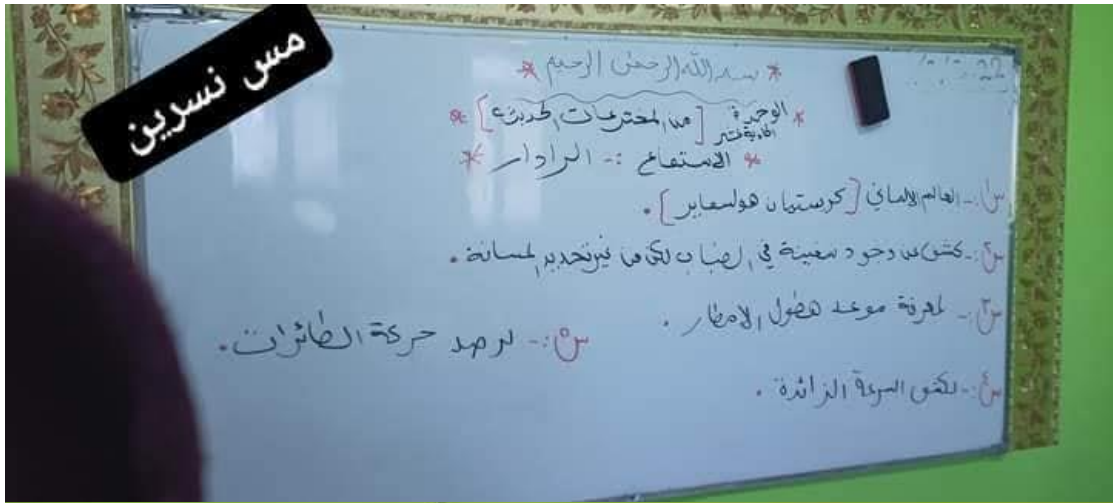 مس نسرين
* بسم الله الرحمن الرحيم *
* الوحدة الحادية عشر [من المخترعات الحديثة] *
* الاستماع :- الرادار *
س١:- العالم الالماني [كرستيان هولسماير].
س٢:- كشف عن وجود سفينة في الضباب لكن من غير تحديد المسافة.
س٣:- لمعرفة موعد هطول الامطار.
س٤:- لكشف السرعة الزائدة.
س٥:- لرصد حركة الطائرات.